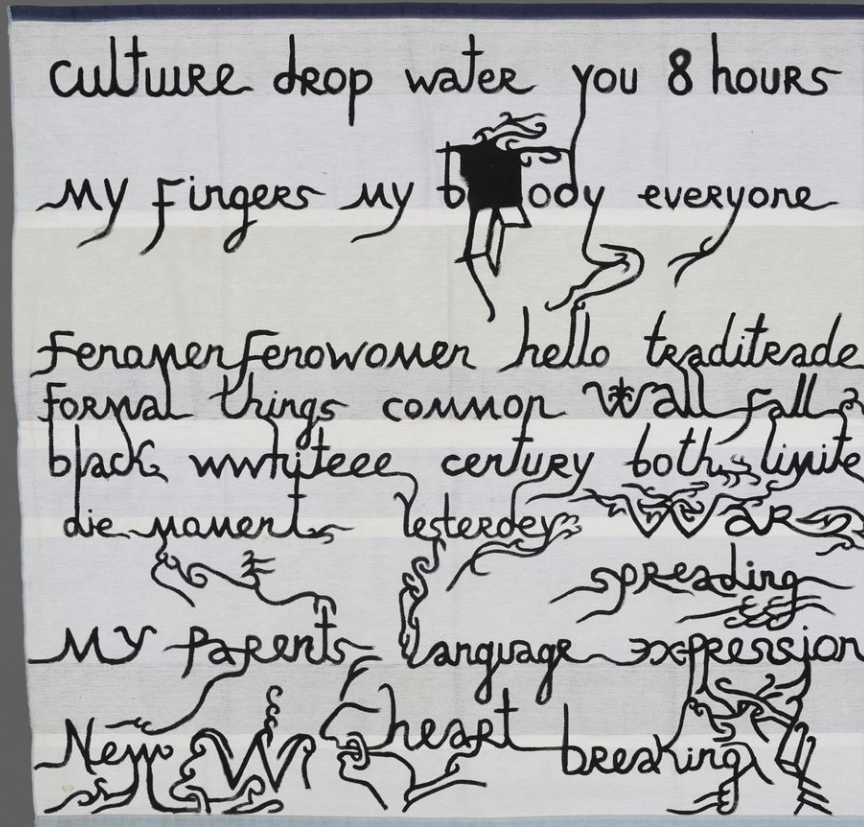 culture drop water you 8 hours
My Fingers My body everyone
Fenomen fenowomen hello traditrade
Formal things common Wall fall
black wwhiteee century both limite
die moment Yesterdey War
spreading
MY Parents Language expression
New W heart breaking